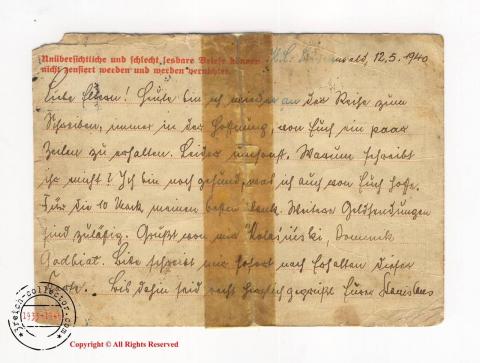 Unübersichtliche und schlecht lesbare Briefe können
nicht zensiert werden und werden vernichtet
wald, 12.5.1940
Liebe Eltern! Heute bin ich wieder an der Reihe zum
Schreiben, immer in der Hoffnung, von Euch ein paar
Zeilen zu erhalten. Leider umsonst. Warum schreibt
ihr nicht? Ich bin noch gesund, was ich auch von Euch hoffe.
Für die 10 Mark meinen besten Dank. Weitere Geldsendungen
sind zulässig. Grüßt von mir Dominik
Bitte schreibt mir sofort nach Erhalten dieser
Karte. Bis dahin seid recht herzlich gegrüßt Eurer Stanislaus
reich-collector.com
1933-1945
Copyright © All Rights Reserved